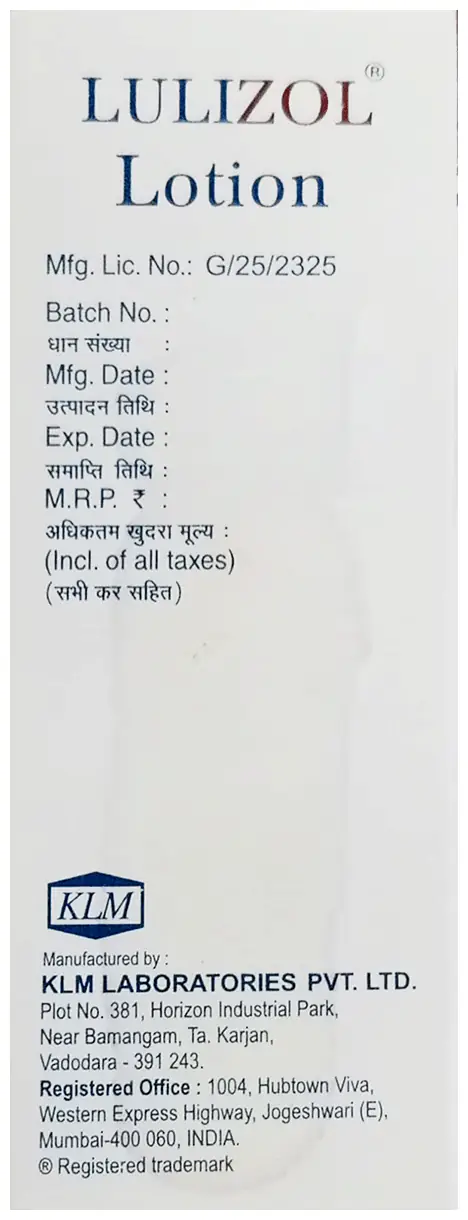 LULIZOL®
Lotion
Mfg. Lic. No.: G/25/2325
Batch No. :
धान संख्या :
Mfg. Date :
उत्पादन तिथि :
Exp. Date :
समाप्ति तिथि :
M.R.P. ₹ :
अधिकतम खुदरा मूल्य :
(Incl. of all taxes)
(सभी कर सहित)
KLM
Manufactured by :
KLM LABORATORIES PVT. LTD.
Plot No. 381, Horizon Industrial Park,
Near Bamangam, Ta. Karjan,
Vadodara - 391 243.
Registered Office : 1004, Hubtown Viva,
Western Express Highway, Jogeshwari (E),
Mumbai-400 060, INDIA.
® Registered trademark